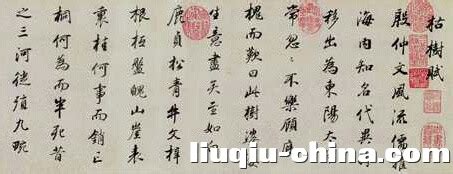 枯樹賦
殷仲文風流儒雅
海內知名代異時
移出為東陽太
常忽〻不樂顧庭
槐而歎曰此樹婆娑
生意盡矣至如白
鹿貞松青牛文梓
根柢盤魄山崖表
裏桂何事而銷亡
桐何為而半死昔
之三河徙殖九畹
liuqiu-china.com